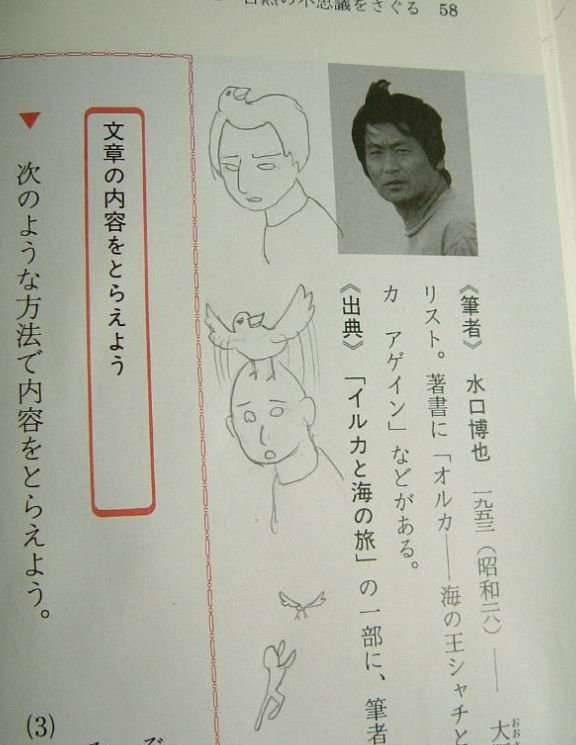 自然の不思議をさぐる 58
《筆者》 水口博也 一九五三(昭和二八)—— 大
おお
リスト。著書に「オルカ——海の王シャチと
カ アゲイン」などがある。
《出典》 「イルカと海の旅」の一部に、筆者
文章の内容をとらえよう
▼ 次のような方法で内容をとらえよう。
(3)